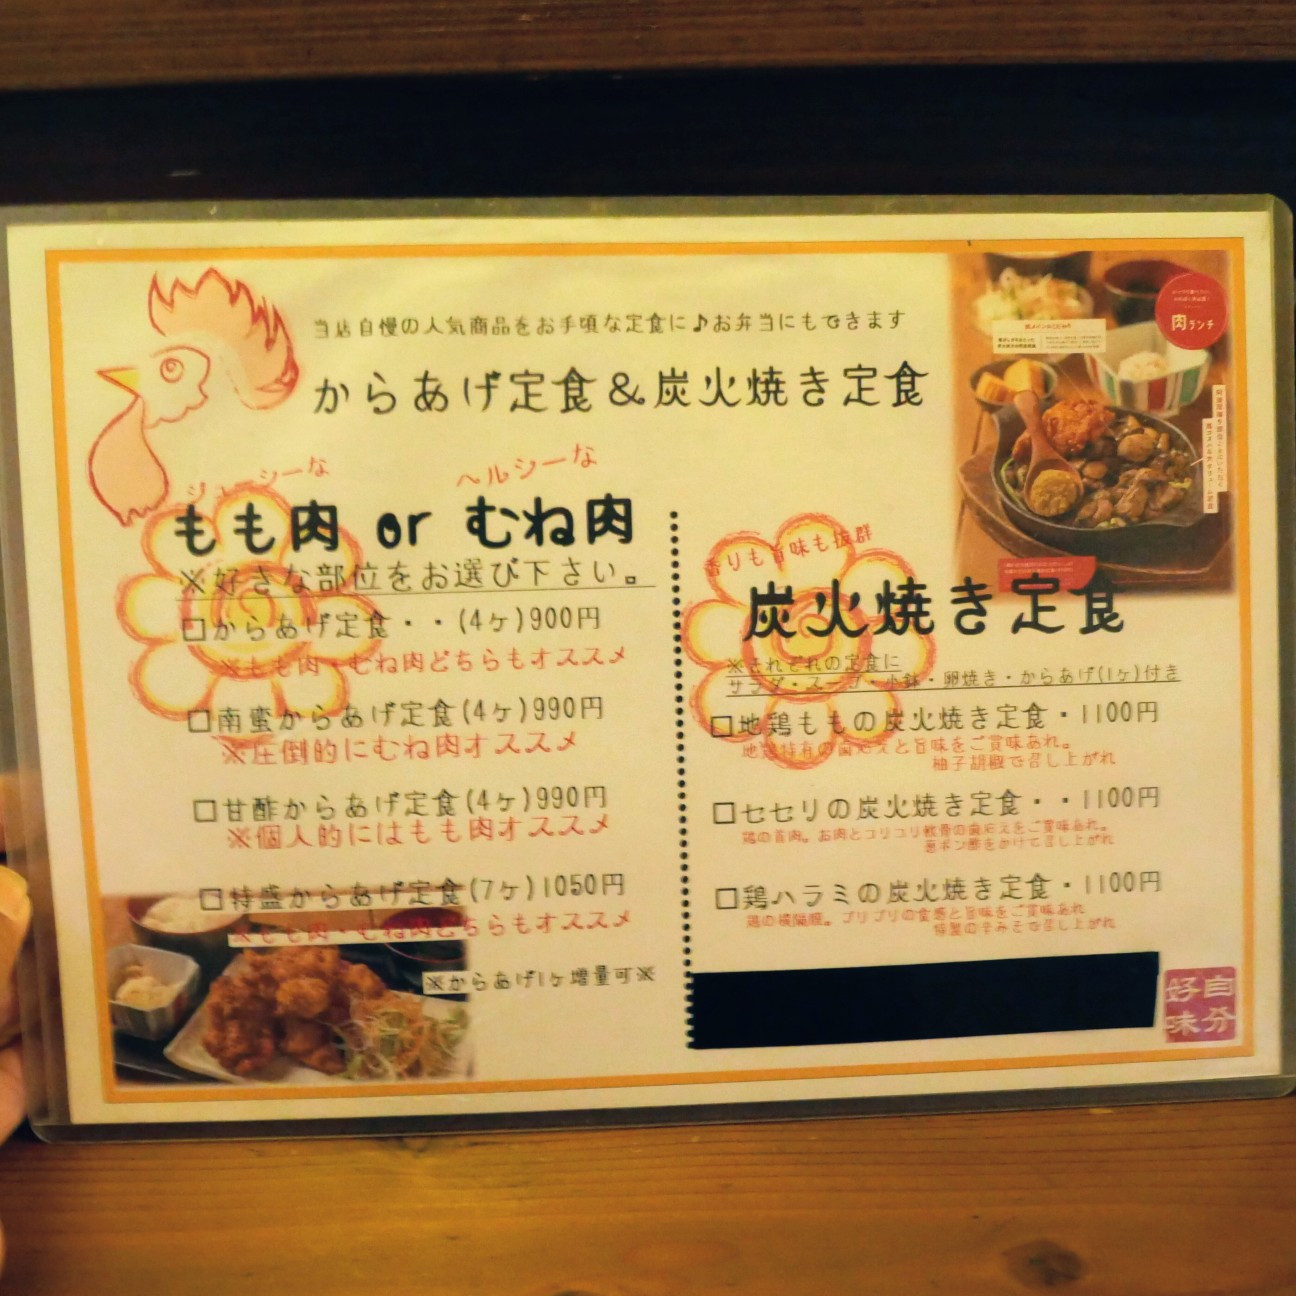 当店自慢の人気商品をお手頃な定食に♪お弁当にもできます
からあげ定食&炭火焼き定食
肉ランチ
ジューシーな ヘルシーな
もも肉 or むね肉
※好きな部位をお選び下さい。
□からあげ定食・・(4ヶ)900円
※もも肉・むね肉どちらもオススメ
□南蛮からあげ定食(4ヶ)990円
※圧倒的にむね肉オススメ
□甘酢からあげ定食(4ヶ)990円
※個人的にはもも肉オススメ
□特盛からあげ定食(7ヶ)1050円
※もも肉・むね肉どちらもオススメ
※からあげ1ヶ増量可※
香りも旨味も抜群
炭火焼き定食
※それぞれの定食に
サラダ・スープ・小鉢・卵焼き・からあげ(1ヶ)付き
□地鶏ももの炭火焼き定食・1100円
地鶏特有の歯応えと旨味をご賞味あれ。
柚子胡椒で召し上がれ
□セセリの炭火焼き定食・・1100円
鶏の首肉。お肉とコリコリ軟骨の歯応えをご賞味あれ。
葱ポン酢をかけて召し上がれ
□鶏ハラミの炭火焼き定食・1100円
鶏の横隔膜。プリプリの食感と旨味をご賞味あれ
特製の辛みそで召し上がれ
自分好味